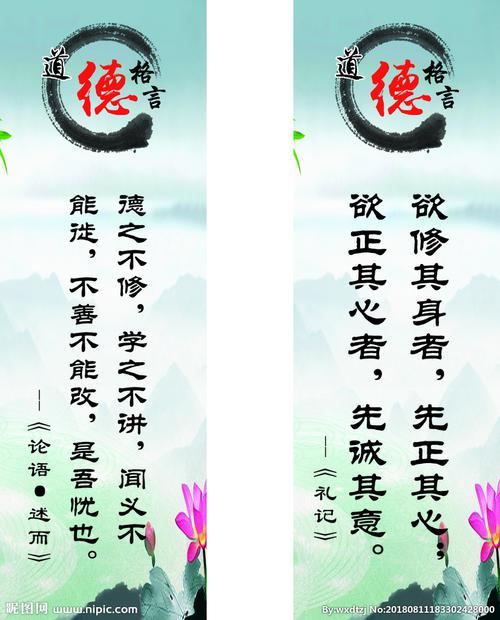 道德格言
德之不修，学之不讲，闻义不
能徙，不善不能改，是吾忧也。
——《论语·述而》
道德格言
欲修其身者，先正其心；
欲正其心者，先诚其意。
——《礼记》
昵图网 www.nipic.com
By:wxdtzj No:20180811183302428000